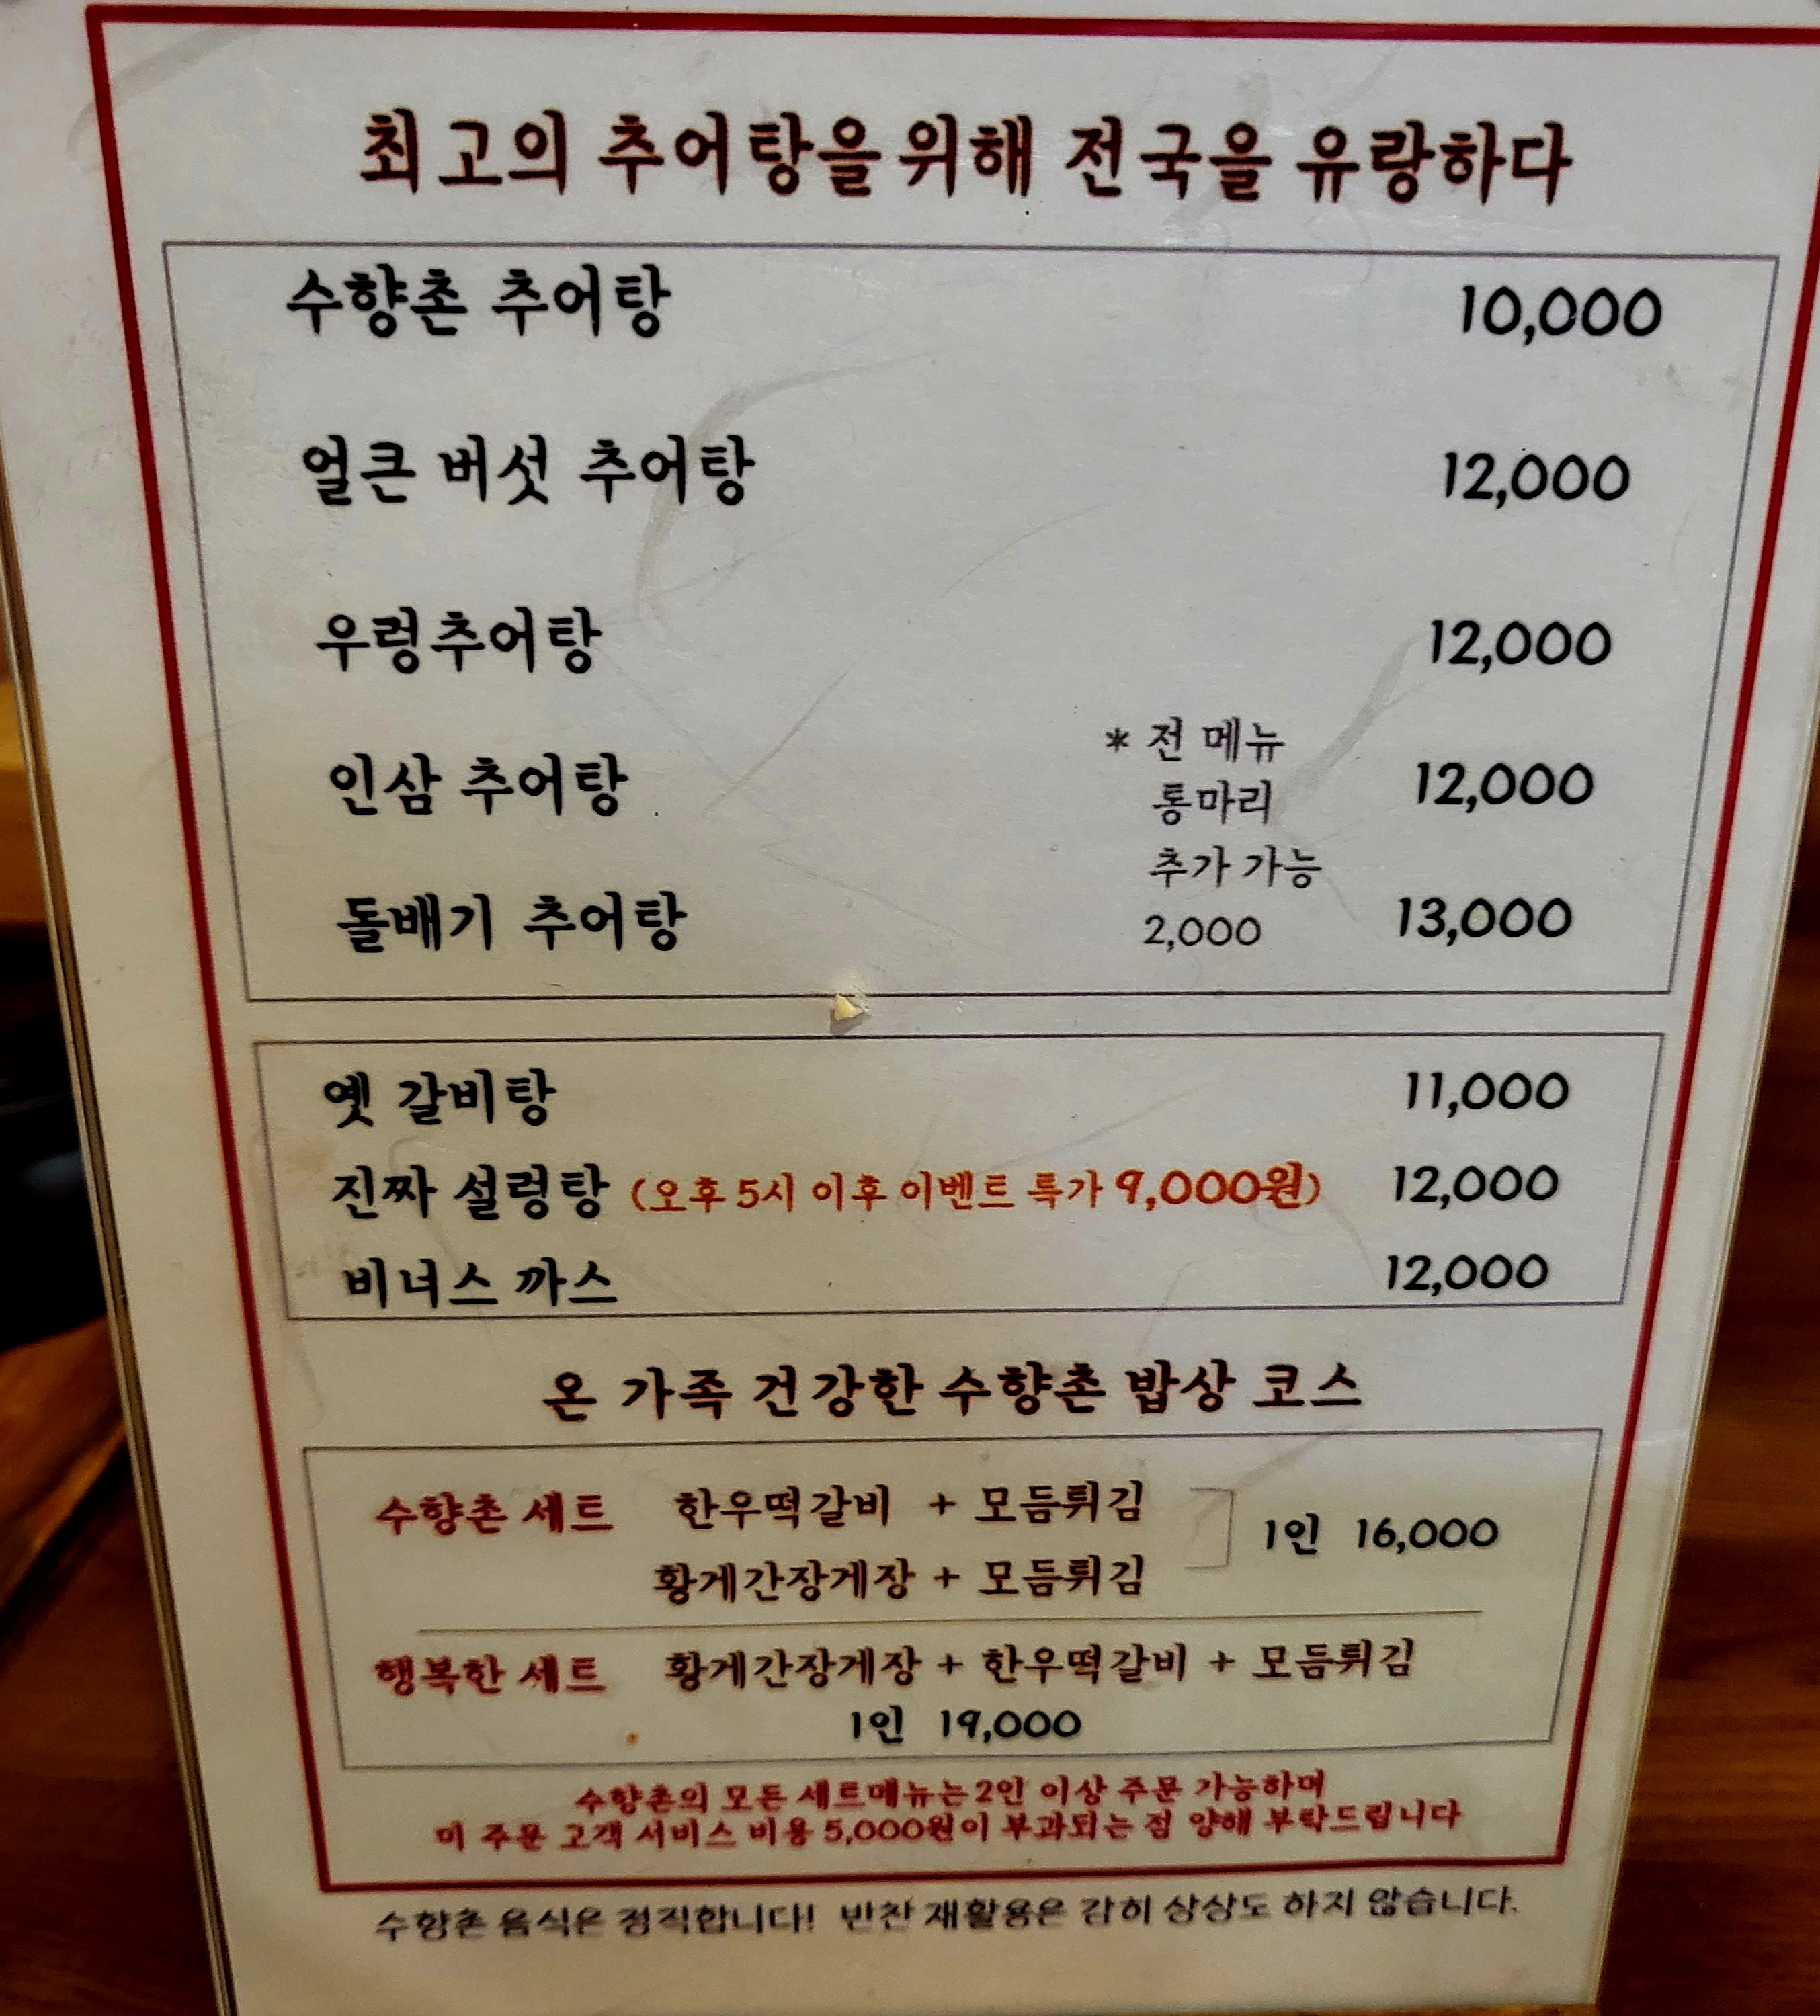 최고의 추어탕을 위해 전국을 유랑하다
수향촌 추어탕 10,000
얼큰 버섯 추어탕 12,000
우렁추어탕 12,000
인삼 추어탕 12,000
돌배기 추어탕 13,000
* 전 메뉴
통마리
추가 가능
2,000
옛 갈비탕 11,000
진짜 설렁탕 (오후 5시 이후 이벤트 특가 9,000원) 12,000
비너스 까스 12,000
온 가족 건강한 수향촌 밥상 코스
수향촌 세트 한우떡갈비 + 모듬튀김
황게간장게장 + 모듬튀김
1인 16,000
행복한 세트 황게간장게장 + 한우떡갈비 + 모듬튀김
1인 19,000
수향촌의 모든 세트메뉴는 2인 이상 주문 가능하며
미 주문 고객 서비스 비용 5,000원이 부과되는 점 양해 부탁드립니다
수향촌 음식은 정직합니다! 반찬 재활용은 감히 상상도 하지 않습니다.